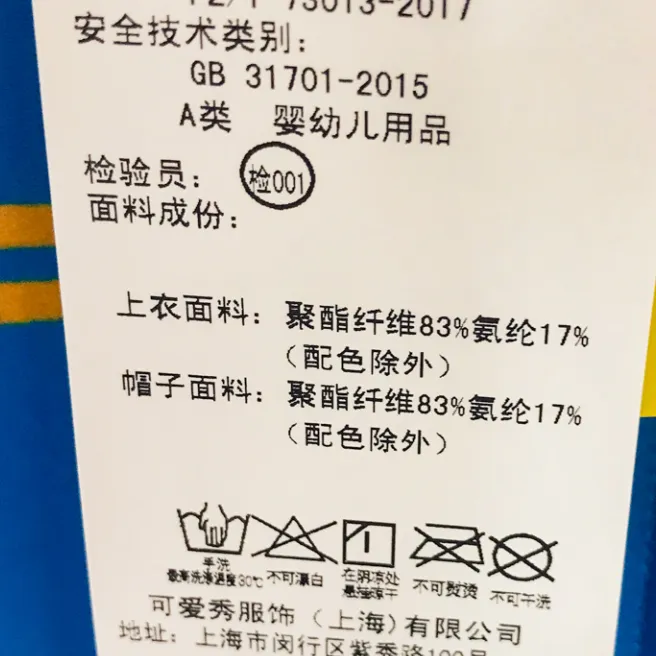 FZ/T 73013-2017
安全技术类别：
GB 31701-2015
A类 婴幼儿用品
检验员： 检001
面料成份：
上衣面料：聚酯纤维83%氨纶17%
（配色除外）
帽子面料：聚酯纤维83%氨纶17%
（配色除外）
手洗 最高洗涤温度30℃
不可漂白
在阴凉处悬挂晾干
不可熨烫
不可干洗
可爱秀服饰（上海）有限公司
地址：上海市闵行区紫秀路100号